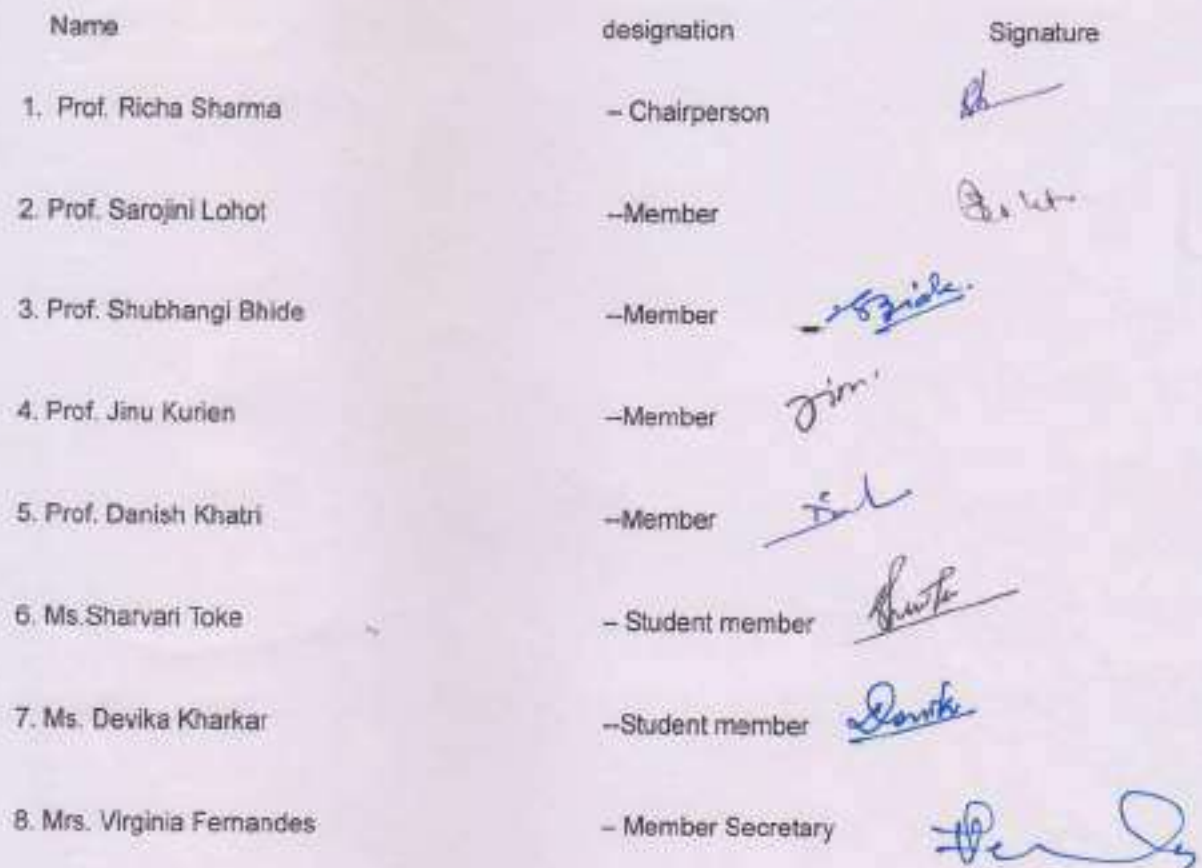 Name designation Signature
1. Prof. Richa Sharma – Chairperson
2. Prof. Sarojini Lohot --Member
3. Prof. Shubhangi Bhide --Member
4. Prof. Jinu Kurien --Member
5. Prof. Danish Khatri --Member
6. Ms.Sharvari Toke – Student member
7. Ms. Devika Kharkar --Student member Devika
8. Mrs. Virginia Fernandes – Member Secretary